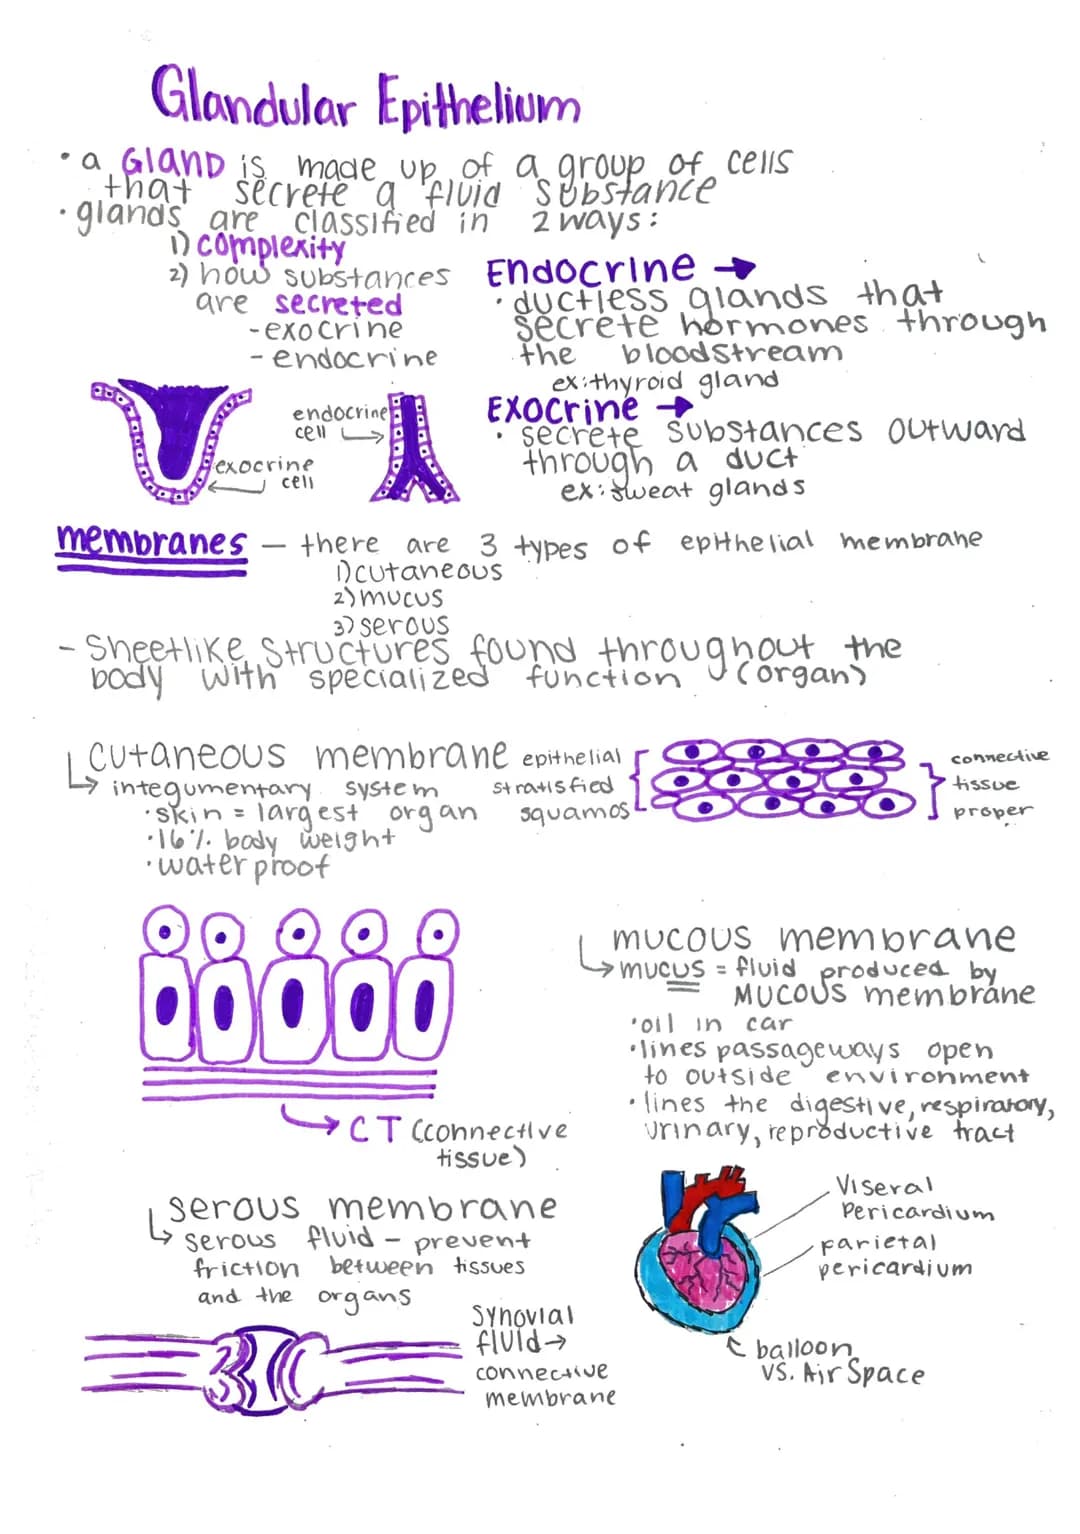 Glandular Epithelium
• a GLAND is made up of a group of cells
that secrete a fluid substance
• glands are classified in 2 ways:
1) complexity
2) how substances
are secreted
- exocrine
- endocrine
Endocrine →
• ductless glands that
secrete hormones through
the bloodstream
ex: thyroid gland
Exocrine →
• secrete substances outward
through a duct
ex: sweat glands
exocrine
cell
endocrine
cell
membranes — there are 3 types of epithelial membrane
1) cutaneous
2) mucus
3) serous
- Sheetlike structures found throughout the
body with specialized function (organ)
cutaneous membrane
→ integumentary system
• skin = largest organ
• 16% body weight
• waterproof
epithelial
stratisfied
squamos
connective
tissue
proper
→ CT (connective
tissue)
mucous membrane
→ mucus = fluid produced by
mucous membrane
• oil in car
• lines passageways open
to outside environment
• lines the digestive, respiratory,
urinary, reproductive tract
serous membrane
→ serous fluid - prevent
friction between tissues
and the organs
Synovial
fluid →
connective
membrane
Viseral
Pericardium
parietal
pericardium
balloon
vs. Air Space